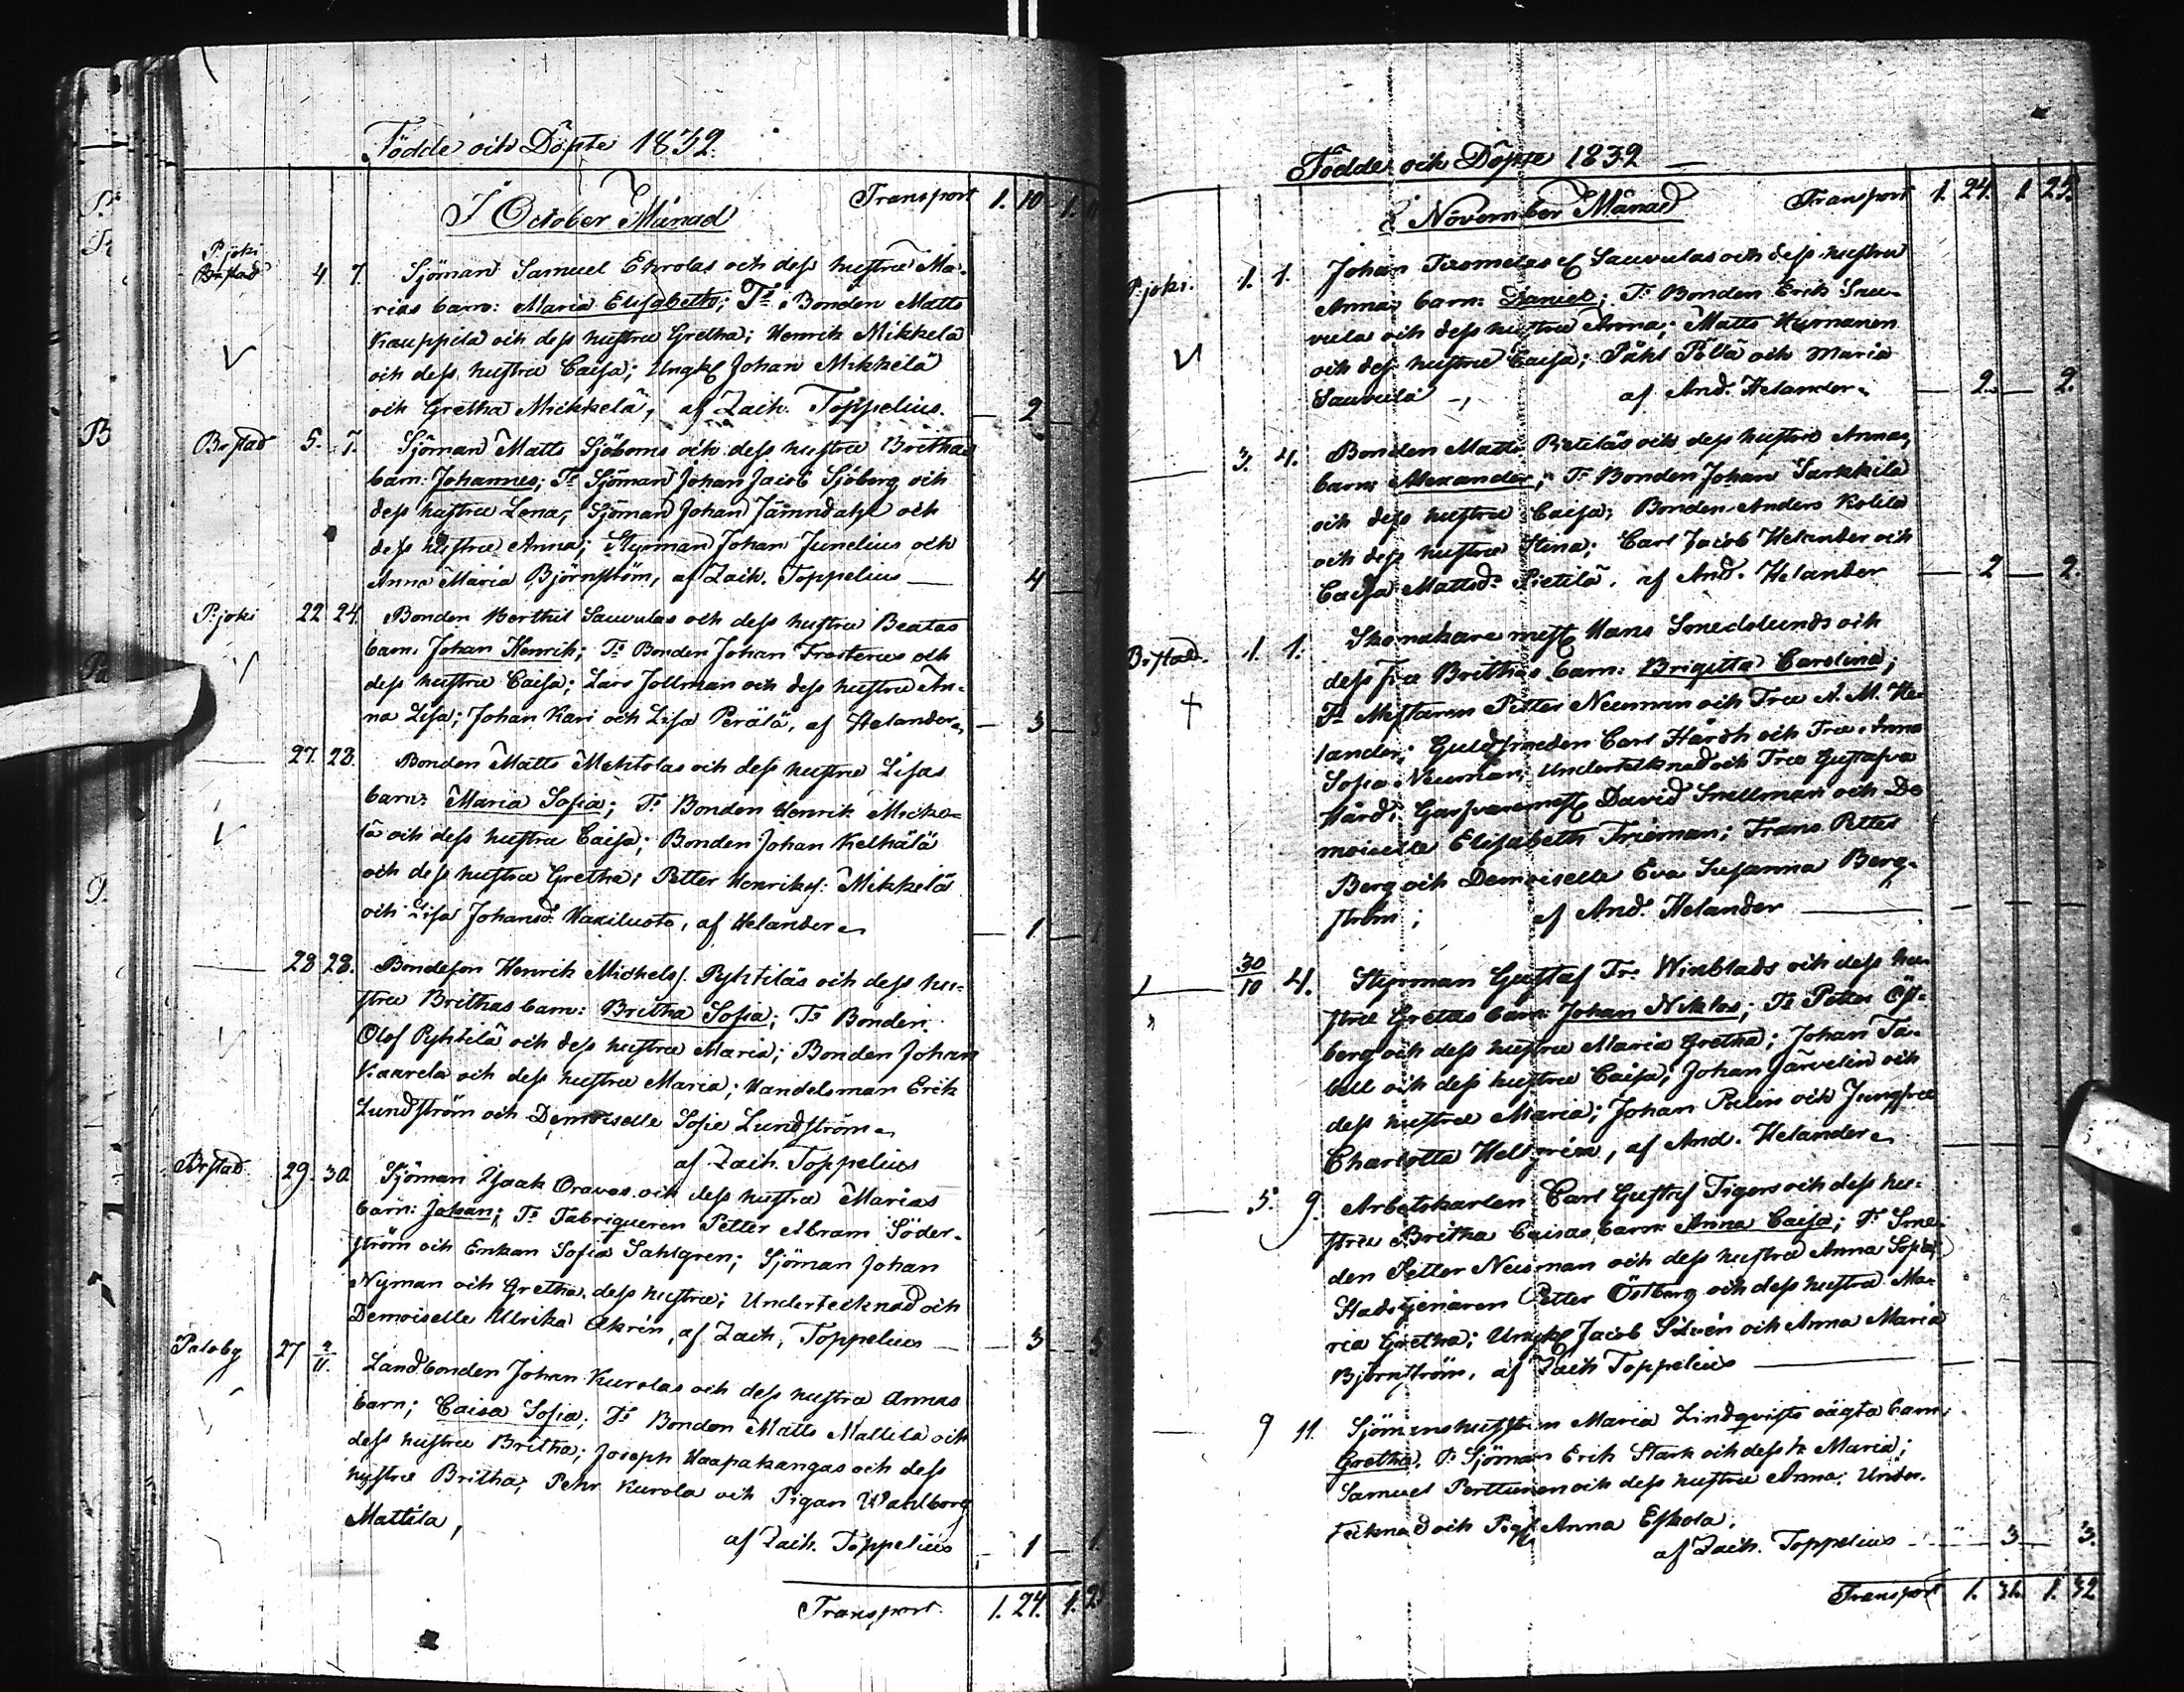 Födde och Döpte 1832.
I October Månad Transport 1. 10 1.
P:joki
Brstad 4 7. Sjöman Samuel Ekrolas och dess hustru Ma-
rias barn: Maria Elisabeth; Ts Bonden Matts
Kauppila och dess hustru Gretha; Henrik Mikkela
och dess hustru Caisa; Ungk Johan Mikkelä
och Gretha Mikkelä, af Zach. Toppelius. 2
Brstad 5. 7. Sjöman Matts Sjöboms och dess hustru Brithas
barn: Johannes; Ts Sjöman Johan Jacob Sjöberg och
dess hustru Lena; Sjöman Johan och
dess hustru Anna; Styrman Johan Junelius och
Anna Maria Björnström, af Zach. Toppelius — 4
P:joki 22 24. Bonden Berthil Sauvulas och dess hustru Beatas
barn: Johan Henrik; Ts Bonden Johan Frosterus och
dess hustru Caisa; Lars Jollman och dess hustru An-
na Lisa; Johan Kari och Lisa Perälä, af Helander 3
— 27. 28. Bonden Matts Mehtolas och dess hustru Lisas
barn: Maria Sofia; Ts Bonden Henrik Micke-
lä och dess hustru Caisa; Bonden Johan Kelhälä
och dess hustru Gretha; Petter Henriks: Mikkelä
och Lisa Johansd: Haxiluoto, af Helander 1
— 28 28. Bondeson Henrik Mickels: Pyhtiläs och dess hu-
stru Brithas barn: Britha Sofia; Ts Bonden
Olof Pyhtilä och dess hustru Maria; Bonden Johan
Kaarela och dess hustru Maria; Handelsman Erik
Lundström och Demoiselle Sofie Lundström
af Zach. Toppelius
Brstad 29. 30. Sjöman Isaak Oravas och dess hustru Marias
barn: Johan; Ts Fabriqueren Petter Abram Söder-
ström och Enkan Sofia Sahlgren; Sjöman Johan
Nyman och Gretha dess hustru; Undertecknad och
Demoiselle Ulrika Akrén, af Zach. Toppelius — 3
Paloby 27 2/11. Landbonden Johan Kurolas och dess hustru Annas
barn; Caisa Sofia; Ts Bonden Matts Mattila och
dess hustru Britha; Joseph Haapakangas och dess
hustru Britha; Pehr Kurola och Pigan Wahlborg
Mattila,
af Zach. Toppelius 1 1.
Transport 1. 24. 1.
Födde och Döpte 1832
I November Månad Transport 1. 24. 1 25.
P:joki. 1. 1. Johan Sauvulas och dess hustru
Annas barn: Daniel; Ts Bonden Erik Sau-
vula och dess hustru Anna; Matts Hurnanen
och dess hustru Caisa; Påhl Pölä och Maria
Sauvula, af And. Helander 2. 2.
— 3. 4. Bonden Matts Pietiläs och dess hustru Annas
barn: Alexander; Ts Bonden Johan Sarkkila
och dess hustru Caisa; Bonden Anders Kolila
och dess hustru Stina; Carl Jacob Helander och
Caisa Mattsd: Pietilä, af And. Helander 2 2.
Brstad. 1. 1. Skomakare mest Hans Smedslunds och
dess fru Brithas barn: Brigitta Carolina;
Ts Mestaren Petter Neuman och Fru A. M. He-
lander; Guldsmeden Carl Hårdh och Fru Anna
Sofia Neuman; Undertecknad och Fru Gustafva
Hårdh; Garfvaremest David Snellman och De-
moiselle Elisabeth Frieman; Frans Petter
Berg och Demoiselle Eva Susanna Berg-
ström; af And. Helander —
— 30/10 4. Styrman Gustaf Fr: Winblads och dess hu-
stru Gretas barn: Johan Niklas; Ts Petter Öst-
berg och dess hustru Maria Gretha; Johan Ta-
bell och dess hustru Caisa; Johan Järvelin och
dess hustru Maria; Johan Palin och Jungfru
Charlotta, af And. Helander
— 5. 9. Arbetskarlen Carl Gustaf Tigers och dess hu-
stru Britha Caisas barn: Anna Caisa; Ts Sme-
den Petter Neuman och dess hustru Anna Sofia
Stadstjenaren Petter Östberg och dess hustru Ma-
ria Gretha; Ungk Jacob Silvén och Anna Maria
Björnström, af Zach Toppelius —
— 9 11. Sjömanshustrun Maria Lindqvists oägta barn
Gretha. Ts Sjöman Erik Stark och dess h: Maria;
Samuel Perttunen och dess hustru Anna; Under-
tecknad och Pig Anna Eskola,
af Zach. Toppelius 3 3.
Transport 1. 31. 1. 32